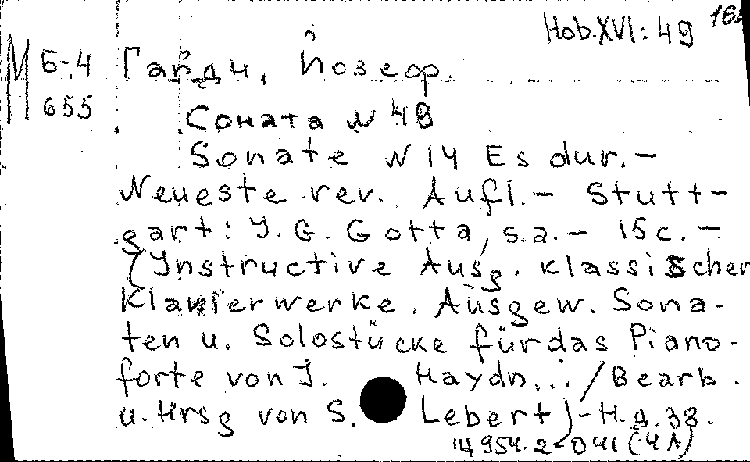 Hob.XVI:49
М Б-4 Гайдн, Йозеф.
655
Соната N 49
Sonate N 14 Es dur.-
Neueste rev. Aufl.- Stutt-
gart: J. G. Gotta, s.a.- 15 c.-
(Instructive Ausg. klassischer
Klavierwerke. Ausgew. Sona-
ten u. Solostücke für das Piano-
forte von J. Haydn.../Bearb.
u. Hrsg von S. Lebert)-Н.д.33.
14954.2-041(4Л)